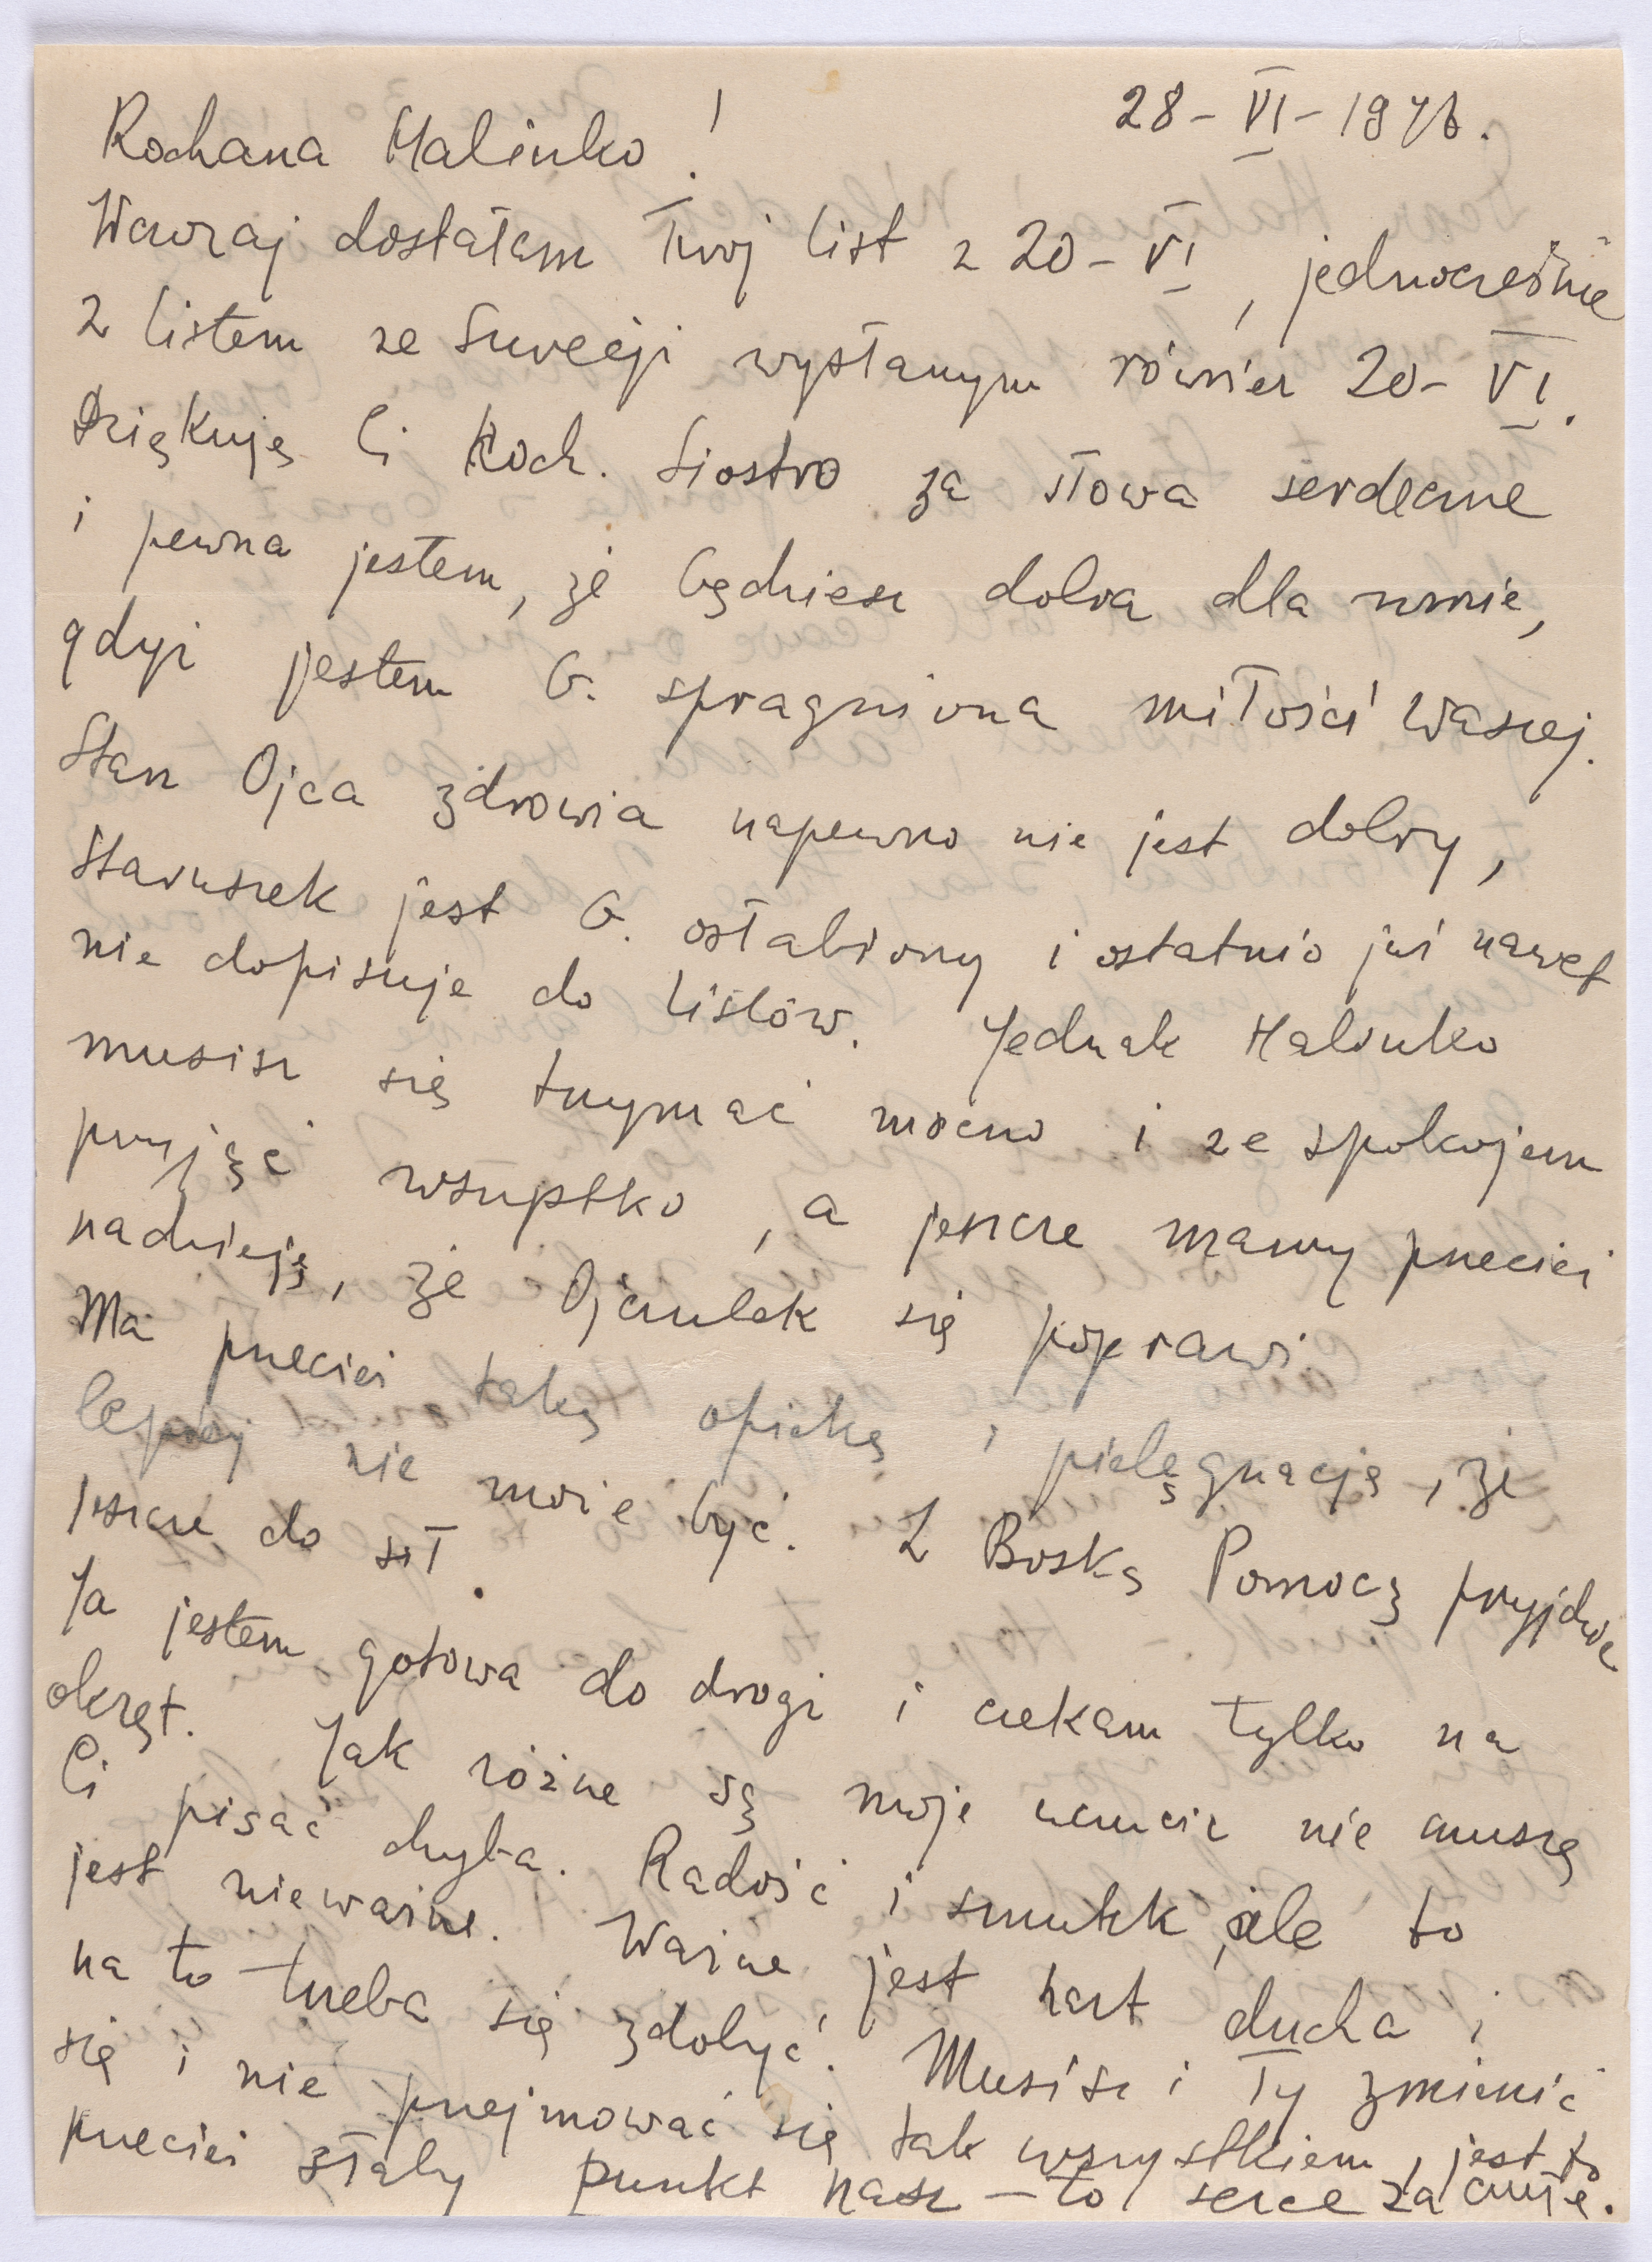 Kochana Halinko!
28-VI-1946.
Wczoraj dostałam Twoj list z 20-VI, jednocześnie
z listem ze Szwecji wysłanym również 20-VI.
Dziękuję Ci Koch. Siostro za słowa serdeczne
i pewna jestem, że będziesz dobra dla mnie,
gdyż jestem b. spragniona miłości Waszej.
Stan Ojca zdrowia napewno nie jest dobry,
staruszek jest b. osłabiony i ostatnio już nawet
nie dopisuje do listów. Jednak Halinko
musisz się trzymać mocno i ze spokojem
przyjąć wszystko, a jeszcze mamy przecież
nadzieję, że Ojczulek się poprawi.
Ma przecież taką opiekę i pielęgnację, że
lepiej nie może być. Z Boską Pomocą przyjdzie
jeszcze do sił.
Ja jestem gotowa do drogi i czekam tylko na
okręt. Jak różne są moje uczucia nie muszę
Ci pisać chyba. Radość i smutek, ale to
jest nieważne. Ważne jest hart ducha i
na to trzeba się zdobyć. Musisz i Ty zmienić
się i nie przejmować się tak wszystkiem, jest to
przecież słaby punkt nasz - to serce za czułe.